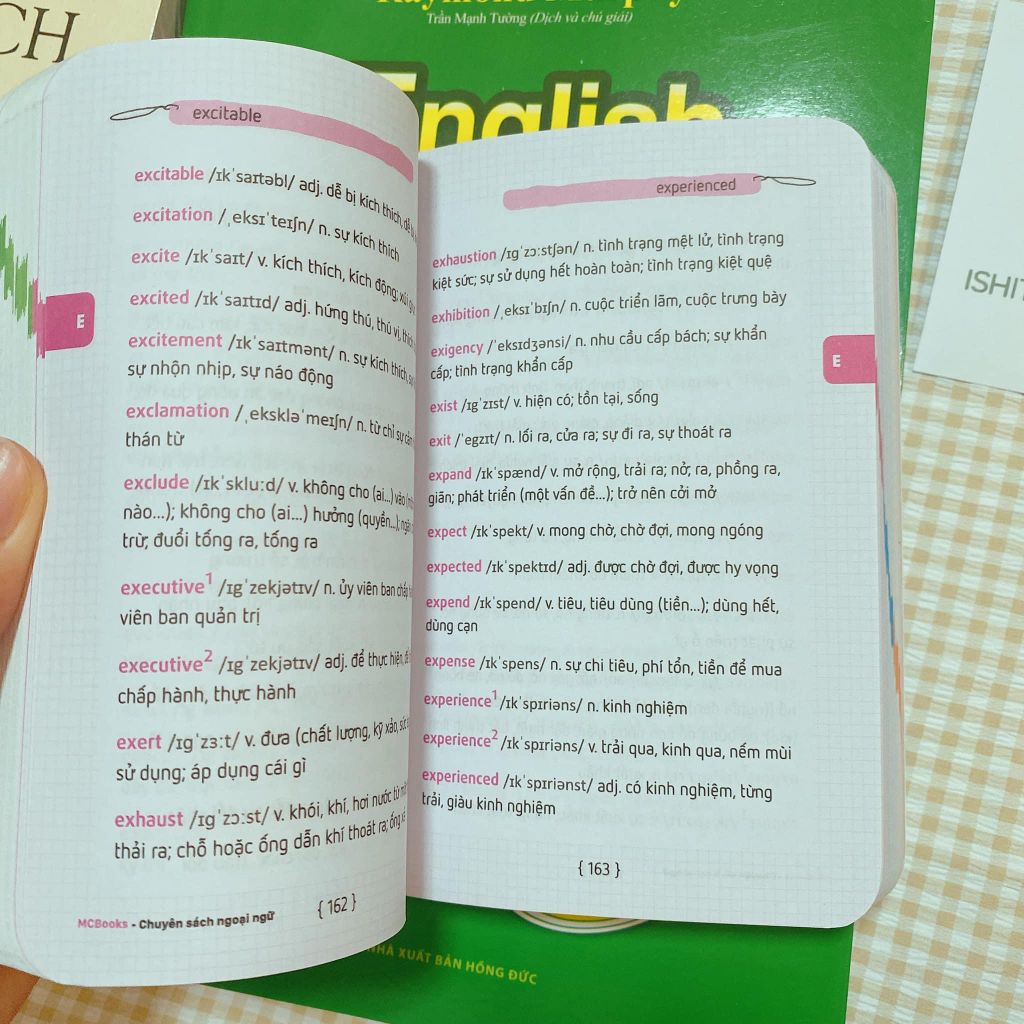 CH
Trần Mạnh Tường (Dịch và chú giải)
English
ISHI
excitable
excitable /ɪkˈsaɪtəbl/ adj. dễ bị kích thích, dễ
excitation /ˌeksɪˈteɪʃn/ n. sự kích thích
excite /ɪkˈsaɪt/ v. kích thích, kích động; xúi
excited /ɪkˈsaɪtɪd/ adj. hứng thú, thú vị, thích
excitement /ɪkˈsaɪtmənt/ n. sự kích thích,
sự nhộn nhịp, sự náo động
exclamation /ˌekskləˈmeɪʃn/ n. từ chỉ sự cảm
thán từ
exclude /ɪkˈskluːd/ v. không cho (ai...) vào
nào...); không cho (ai...) hưởng (quyền...);
trừ; đuổi tống ra, tống ra
executive1 /ɪgˈzekjətɪv/ n. ủy viên ban chấp
viên ban quản trị
executive2 /ɪgˈzekjətɪv/ adj. để thực hiện,
chấp hành, thực hành
exert /ɪgˈzɜːt/ v. đưa (chất lượng, kỹ xảo,
sử dụng; áp dụng cái gì
exhaust /ɪgˈzɔːst/ v. khói, khí, hơi nước từ
thải ra; chỗ hoặc ống dẫn khí thoát ra; ống
E
MCBooks - Chuyên sách ngoại ngữ
{ 162 }
experienced
exhaustion /ɪgˈzɔːstʃən/ n. tình trạng mệt lử, tình trạng
kiệt sức; sự sử dụng hết hoàn toàn; tình trạng kiệt quệ
exhibition /ˌeksɪˈbɪʃn/ n. cuộc triển lãm, cuộc trưng bày
exigency /ˈeksɪdʒənsi/ n. nhu cầu cấp bách; sự khẩn
cấp; tình trạng khẩn cấp
exist /ɪgˈzɪst/ v. hiện có; tồn tại, sống
exit /ˈegzɪt/ n. lối ra, cửa ra; sự đi ra, sự thoát ra
expand /ɪkˈspænd/ v. mở rộng, trải ra; nở; ra, phồng ra,
giãn; phát triển (một vấn đề...); trở nên cởi mở
expect /ɪkˈspekt/ v. mong chờ, chờ đợi, mong ngóng
expected /ɪkˈspektɪd/ adj. được chờ đợi, được hy vọng
expend /ɪkˈspend/ v. tiêu, tiêu dùng (tiền...); dùng hết,
dùng cạn
expense /ɪkˈspens/ n. sự chi tiêu, phí tổn, tiền để mua
experience1 /ɪkˈspɪriəns/ n. kinh nghiệm
experience2 /ɪkˈspɪriəns/ v. trải qua, kinh qua, nếm mùi
experienced /ɪkˈspɪriənst/ adj. có kinh nghiệm, từng
trải, giàu kinh nghiệm
E
{ 163 }
NHÀ XUẤT BẢN HỒNG ĐỨC